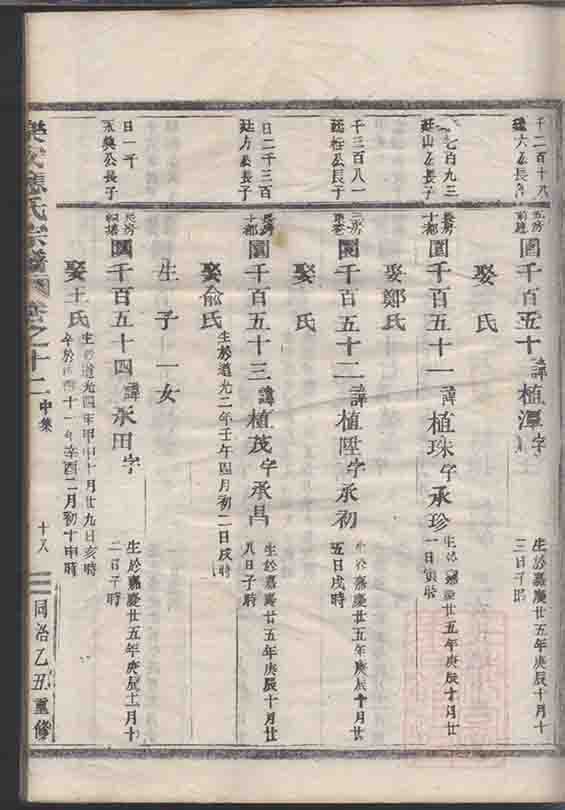 千二百十八
六公長
五房
圓千百五十 諱植潭 字
生於嘉慶廿五年庚辰十月十
三日子時
娶 氏
七百九三
廷山公長子
長房
十都
圓千百五十一 諱植珠 字承珍
生於嘉慶廿五年庚辰十月廿
一日寅時
娶鄭氏
千三百八一
廷松公長子
三房
圓千百五十二 諱植陞 字承初
生於嘉慶廿五年庚辰十月廿
五日戌時
娶 氏
日二千三百
廷方公長子
長房
十都
圓千百五十三 諱植茂 字承昌
生於嘉慶廿五年庚辰十月廿
八日子時
娶俞氏
生於道光二年壬午四月初二日戌時
生 子 一 女
日一千
公長子
長房
圓千百五十四 諱承田 字
生於嘉慶廿五年庚辰十一月十
二日子時
娶王氏
生於道光四年甲申十月廿九日亥時
卒於 十一年辛酉二月初十申時
樂安蔣氏宗譜 卷之十二 中集 十八 同治乙丑重修